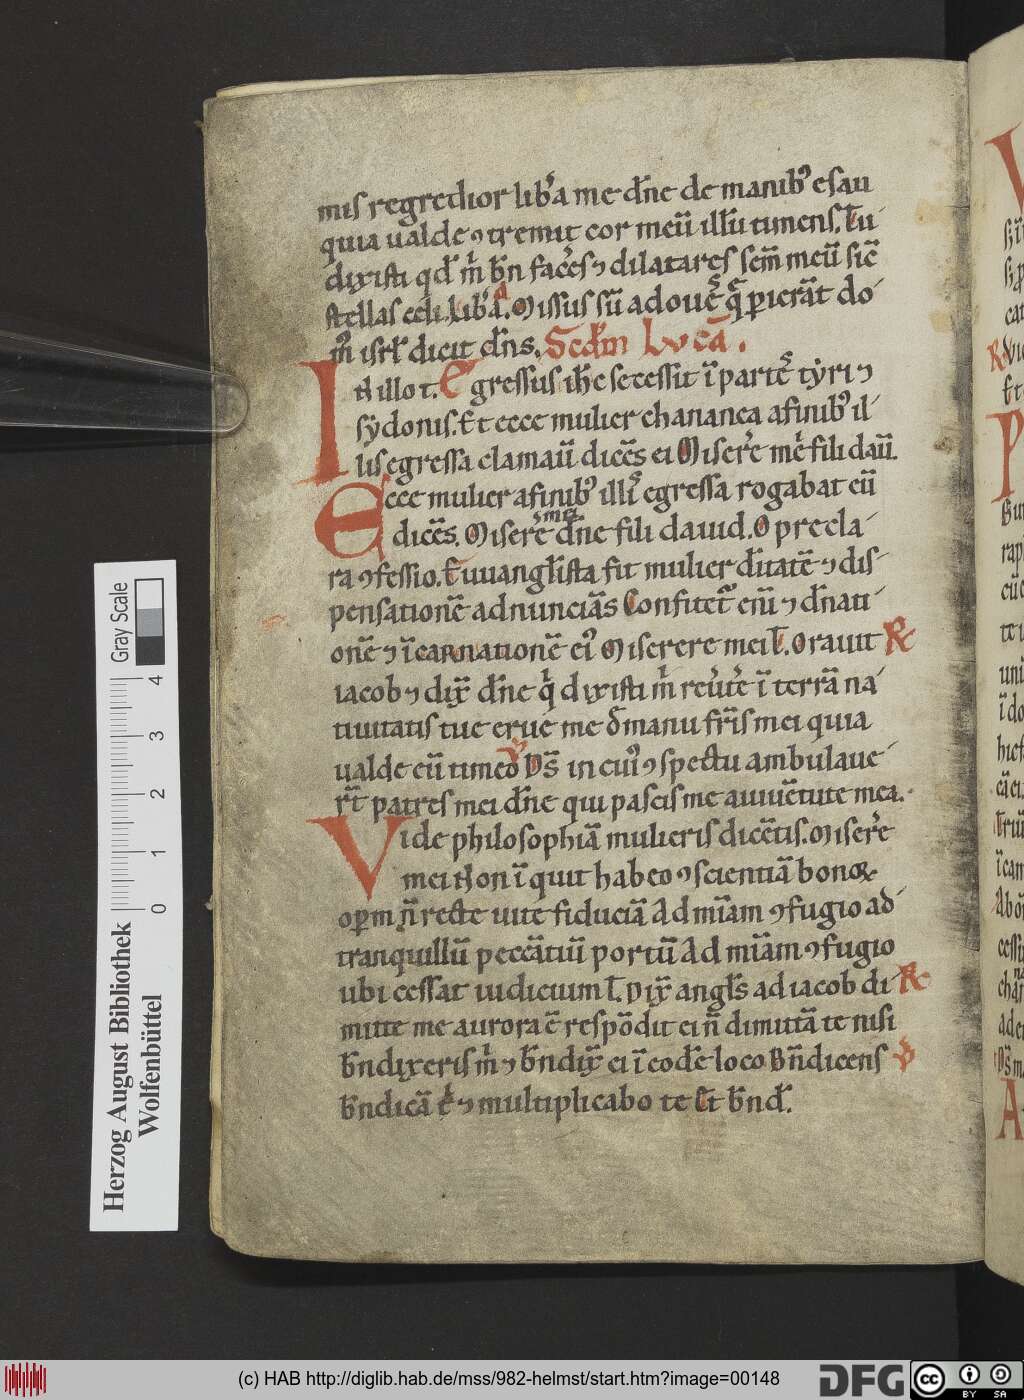 mis regredior lib̾a me dn̄e de manib⁹ esau
quia ualde ⁊ tremit cor meū illū timens. Tu
dixisti qd̄ m̄ bn̄ faceēs ⁊ dilatares sem̄ meū sic̄
stellas celi. lib̾a. Missus sū ad oues̄ q̄ perierāt do
m̄ isrl̄ dicit dn̄s. Scd̄m Lucā.
In illo t. Egressus ih̄c secessit ī partes̄ tẏri ⁊
sẏdonis. Et ecce mulier chananea a finib⁹ il
lis egressa clamauit̄ dicēs ei Miserere m̄ fili dauī.
Ecce mulier a finib⁹ illis̄ egressa rogabat eū
dicēs. Miserere mei dn̄e fili dauid. O precla
ra ꝯfessio. Euuangl̄ista fit mulier diuitatē ⁊ dis
pensationē adnunciās Confitet̄ eni̅ ⁊ dn̄ati
onē ⁊ īcarnationē ei⁹ Miserere mei t̄. Orauit R
iacob ⁊ dix̄ dn̄e q̄ dixisti m̄ reuertere ī terrā na
tiuitatis tue erue me d̄ manu fr̄is mei quia
ualde eū timeo V Ds̄ in cui⁹ ꝯspectu ambulaue
rt̄ patres mei dn̄e qui pascis me a iuuētute mea.
Vide philosophiā mulieris dicētis. Miserere
mei Non īquit habeo ꝯscientiā bonoꝝ
oꝑm n̄ recte uite fiduciā Ad mīam ꝯfugio ad
tranquillū peccātiū portū Ad mīam ꝯfugio
ubi cessat iudicium t̄. Dix̄ angl̄s ad iacob di R
mitte me aurora ē respōdit ei n̄ dimittā te nisi
bn̄dixeris m̄ ⁊ bn̄dix̄ ei ī codē loco Bn̄dicens V
bn̄dicā t̄ ⁊ multiplicabo te Et bn̄d.
Herzog August Bibliothek
Wolfenbüttel
Gray Scale
0 1 2 3 4
(c) HAB http://diglib.hab.de/mss/982-helmst/start.htm?image=00148
DFG
cc BY SA